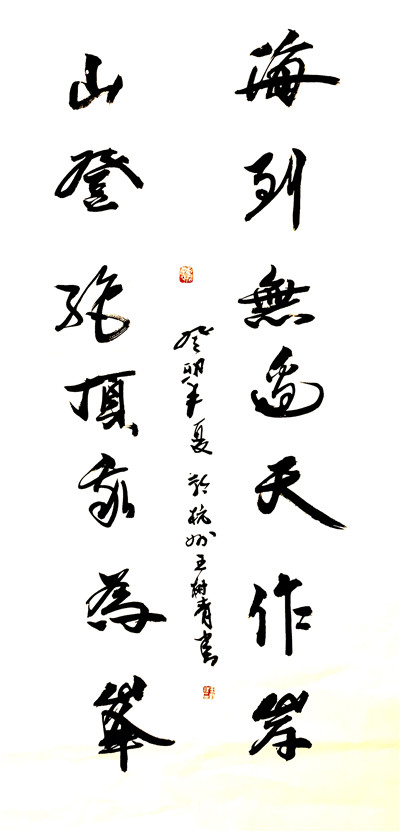 海到無邊天作岸
山登絕頂我為峯
癸卯年夏於杭州王樹青書